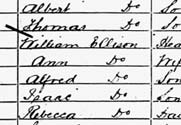 Albert Do So
Thomas Do So
William Ellison Hea
Ann Do Wif
Alfred Do Son
Isaac Do So
Rebecca Do Dau